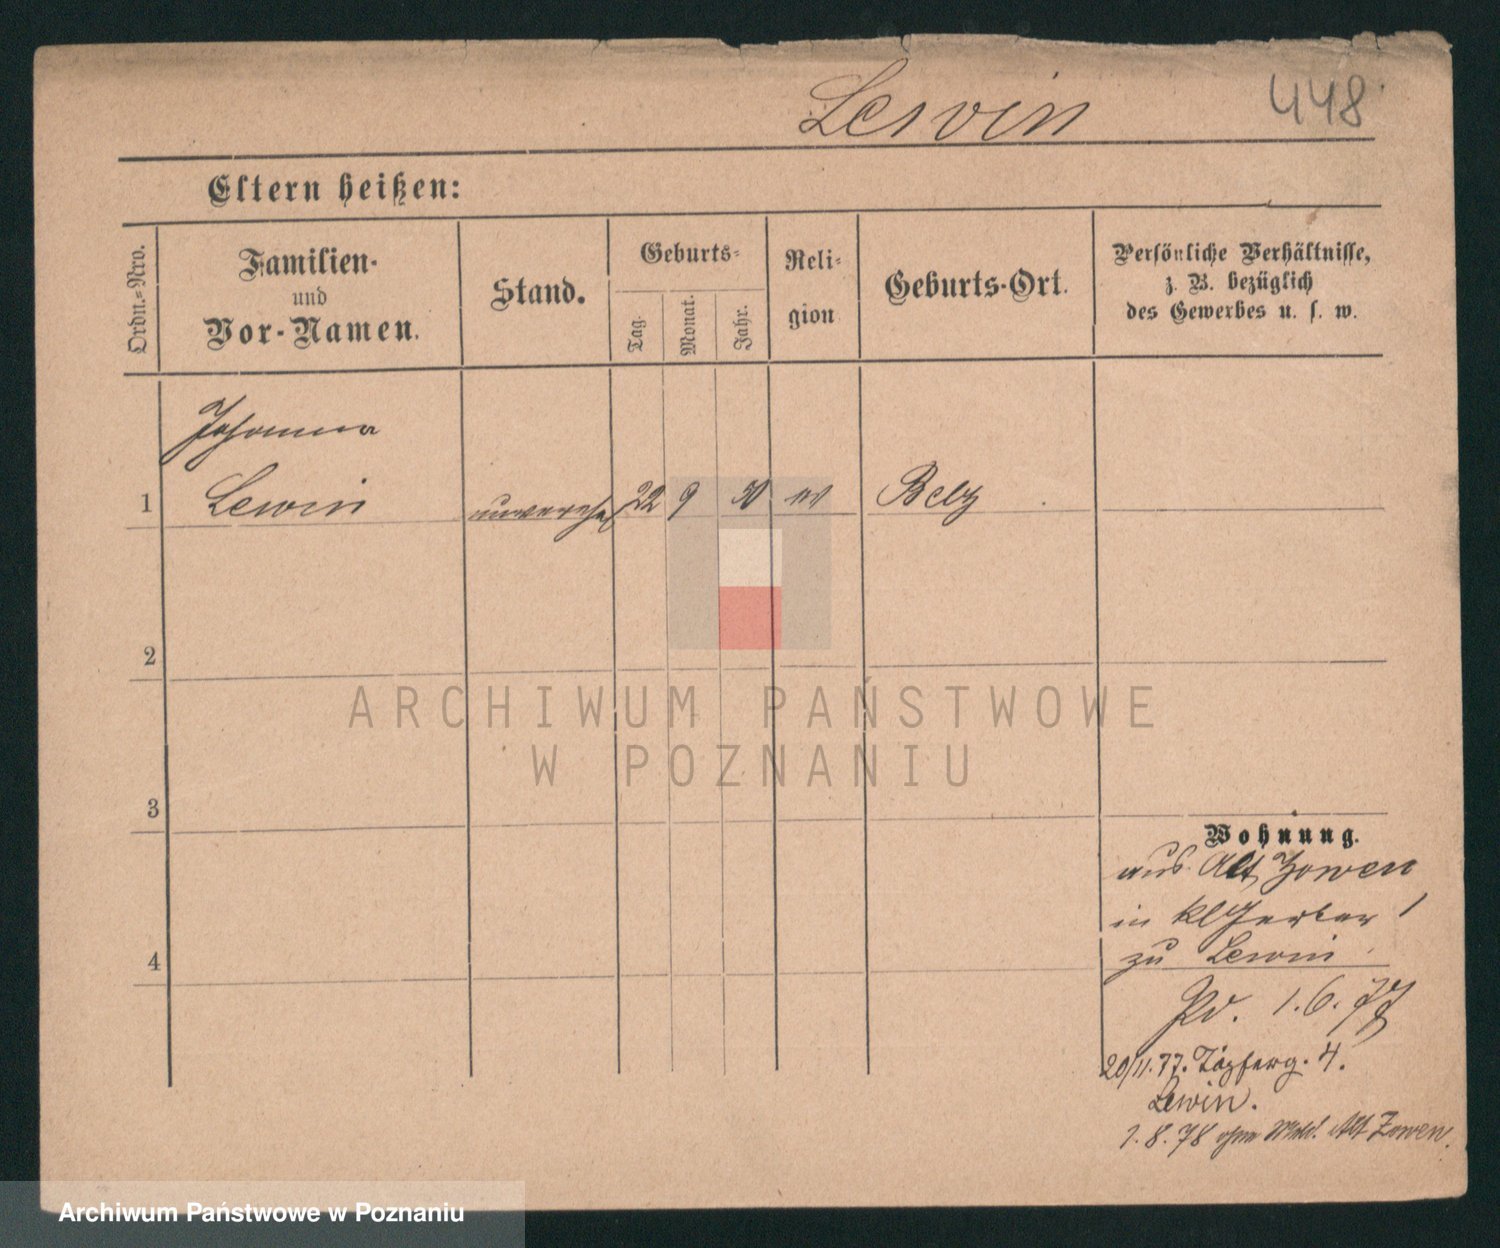 Lewin 448
Eltern heißen:
Ordn.=Nro.
Familien-
und
Vor-Namen.
Stand.
Geburts=
Tag.
Monat.
Jahr.
Reli=
gion
Geburts-Ort.
Persönliche Verhältnisse,
z. B. bezüglich
des Gewerbes u. s. w.
Johanna
1 Lewin unverehel 22 9 50 Belz
2
ARCHIWUM PAŃSTWOWE
W POZNANIU
3
Wohnung.
aus Alt Zowen
in kl Gerber 1
4 zu Lewin
1.6.77
20/11.77. Töpferg. 4.
Lewin.
1.8.78 ohne Alt Zowen.
Archiwum Państwowe w Poznaniu